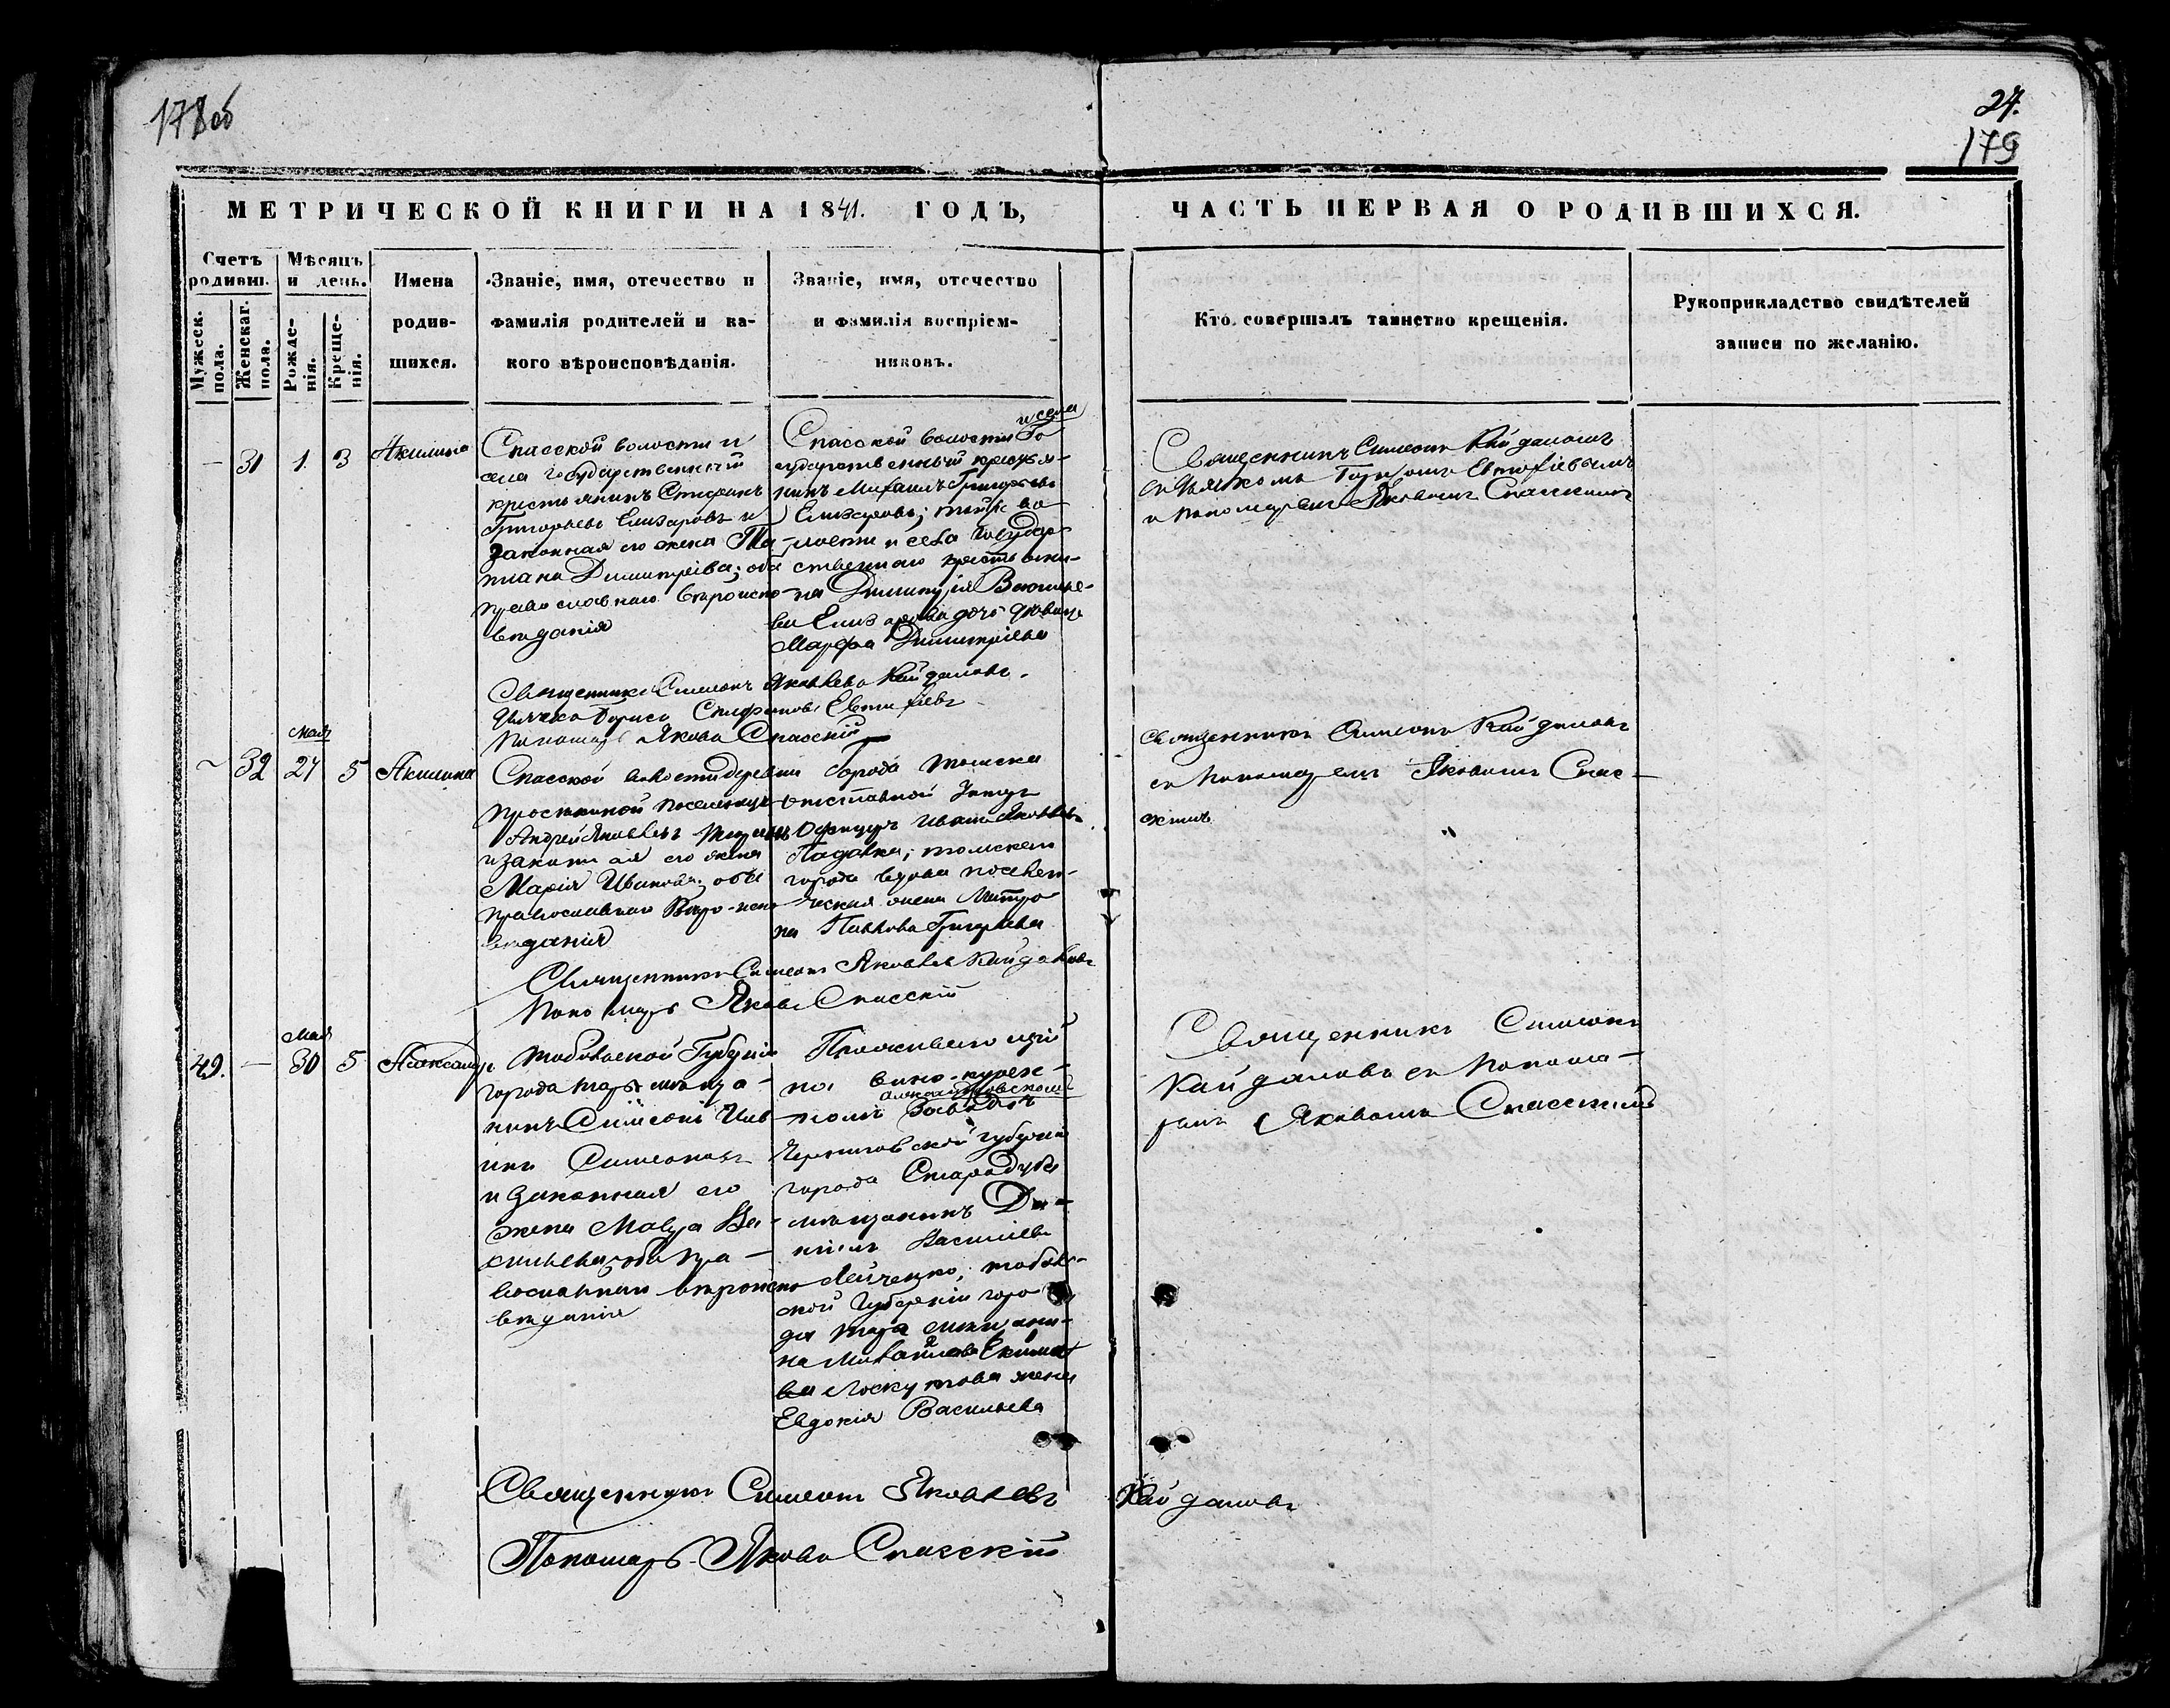 178об
27.
179
МЕТРИЧЕСКОЙ КНИГИ НА 1841. ГОДЪ,
ЧАСТЬ ПЕРВАЯ О РОДИВШИХСЯ.
Счетъ родивш.
Мужеск. пола.
Женскаг. пола.
Мѣсяцъ и день.
Рожденія.
Крещенія.
Имена родившихся.
Званіе, имя, отечество и фамилія родителей и какого вѣроисповѣданія.
Званіе, имя, отечество и фамилія воспріемниковъ.
Кто совершалъ таинство крещенія.
Рукоприкладство свидѣтелей записи по желанію.
— 31 1. 3 Акилина
Спасской волости и
села государственный
крестьянинъ Стефанъ
Григорьевъ Елизаровъ и
законная его жена Та-
тиана Димитріева; оба
православнаго вѣроиспо-
вѣданія
Спасской волости и села Го-
сударственный крестья-
нинъ Михаилъ Григорьевъ
Елизаровъ; той же во-
лости и села Государ-
ственнаго крестьяни-
на Димитрія Василье-
ва Елизарова дочь девица
Марфа Димитріева
Священникъ Симеонъ Кайдаловъ
съ дьячкомъ Борисомъ Евтифіевымъ
и пономаремъ Яковомъ Спасскимъ
Священникъ Симеонъ Яковлевъ Кайдаловъ.
Дьячекъ Борисъ Стефановъ Евтифіевъ
Пономарь Яковъ Спасскій
Мая
— 32 27 5 Акилина
Спасской волости деревни
поселенецъ
Андрей Яковлевъ
и законная его жена
Марія Иванова; оба
православнаго вѣроиспо-
вѣданія
Города Томска
отставной Унтеръ
Офицеръ Иванъ Яковлевъ
томскаго
города вдова
жена Матро-
на Павлова Григорьева
Священникъ Симеонъ Кайдаловъ
съ пономаремъ Яковомъ Спас-
скимъ
Священникъ Симеонъ Яковлевъ Кайдаловъ
Пономарь Яковъ Спасскій
Мая
49. — 30 5 Александръ
Тобольской Губерніи
города Тары мѣща-
нинъ Симеонъ
Симеоновъ
и законная его
жена Мавра Ва-
сильева; оба пра-
вославнаго вѣроиспо-
вѣданія
Проживающій
на вино-курен-
номъ Александровскомъ Заводѣ
Черниговской губерніи
города Стародуба
мѣщанинъ
Василіевъ
тоболь-
ской Губерніи горо-
да Тары мѣщани-
на Михаила Екимо-
ва Лоскутова жена
Евдокія Васильева
Священникъ Симеонъ
Кайдаловъ съ понома-
ремъ Яковомъ Спасскимъ
Священникъ Симеонъ Яковлевъ Кайдаловъ
Пономарь Яковъ Спасскій